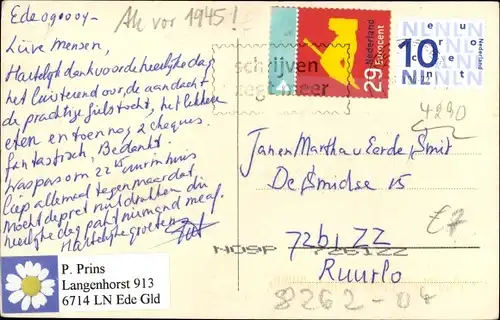 Ede 090004-
Ak vor 1945!
Lieve mensen,
Hartelijk dank voor de heerlijke dag
het luisterend oor, de aandacht
de prachtige fietstocht, het lekkere
eten en toen nog 2 cheques.
Fantastisch, Bedankt.
Was pas om 22 15 uur in huis
Liep allemaal tegen maar dat
mocht de pret niet drukken die
heerlijke dag pakt niemand me af.
Hartelijke groeten
P. Prins
Langenhorst 913
6714 LN Ede Gld
schrijven
zegt meer
Nederland
29 Eurocent
NLNLNL
euro
10
cent
NL
Nederland
4290
Jan en Martha v Eerde, Smit
De Smidse 15
7261 ZZ
NDSP 7261ZZ
Ruurlo
8262-04